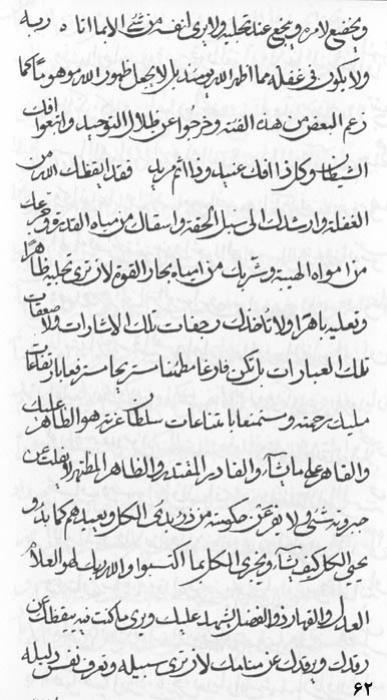 ويخضع لامره ويخشع عند تجليه ولا يرى لنفسه من شيئ الا ما اتاه ربه
ولا يكون في غفلة مما اظهر الله و يصد بل لا يجعل ظهور الله موهوما كما
زعم البعض من هذه الفئة و خرجوا عن ظلال التوحيد واتبعوا افك
الشيطان وكل ذا افك عنيد وذا اثم يريد فقد ايقظك الله من
الغفلة وارشدك الى سبل الحقة واسقاك من مياه القدرة و
من امواه الهيبة و شربك من امياه بحار القوة لان ترى تجليه ظاهرا
وتعليه باهرا ولا تأخذك رجفات تلك الاشارات ولا صعقات
تلك العبارات بل تكن فارغا مطمئنا مستريحا مسترفعا بارتفاعات
مليك رحمته و مستمنعا بامتناعات سلطان عزته هو الظاهر عليك
والقاهر على ما يشآء والقادر المقتدر والظاهر المطهر لا يفلت عن
جبروته شيئ ولا يفر عن حكومته من ذي روح الكل ويعيدهم كما بدء و
يحيي الكل كيف يشآء و يجزي الكل بما اكتسبوا وان ربك لهو العلام
العدل والقهار ذو الفضل الشهيد عليك و يرى ما كنت فيه يوقظك عن
رقدك و يرفدك عن منامك لان ترى سبيله وتعرف نفس دليله
٦٢